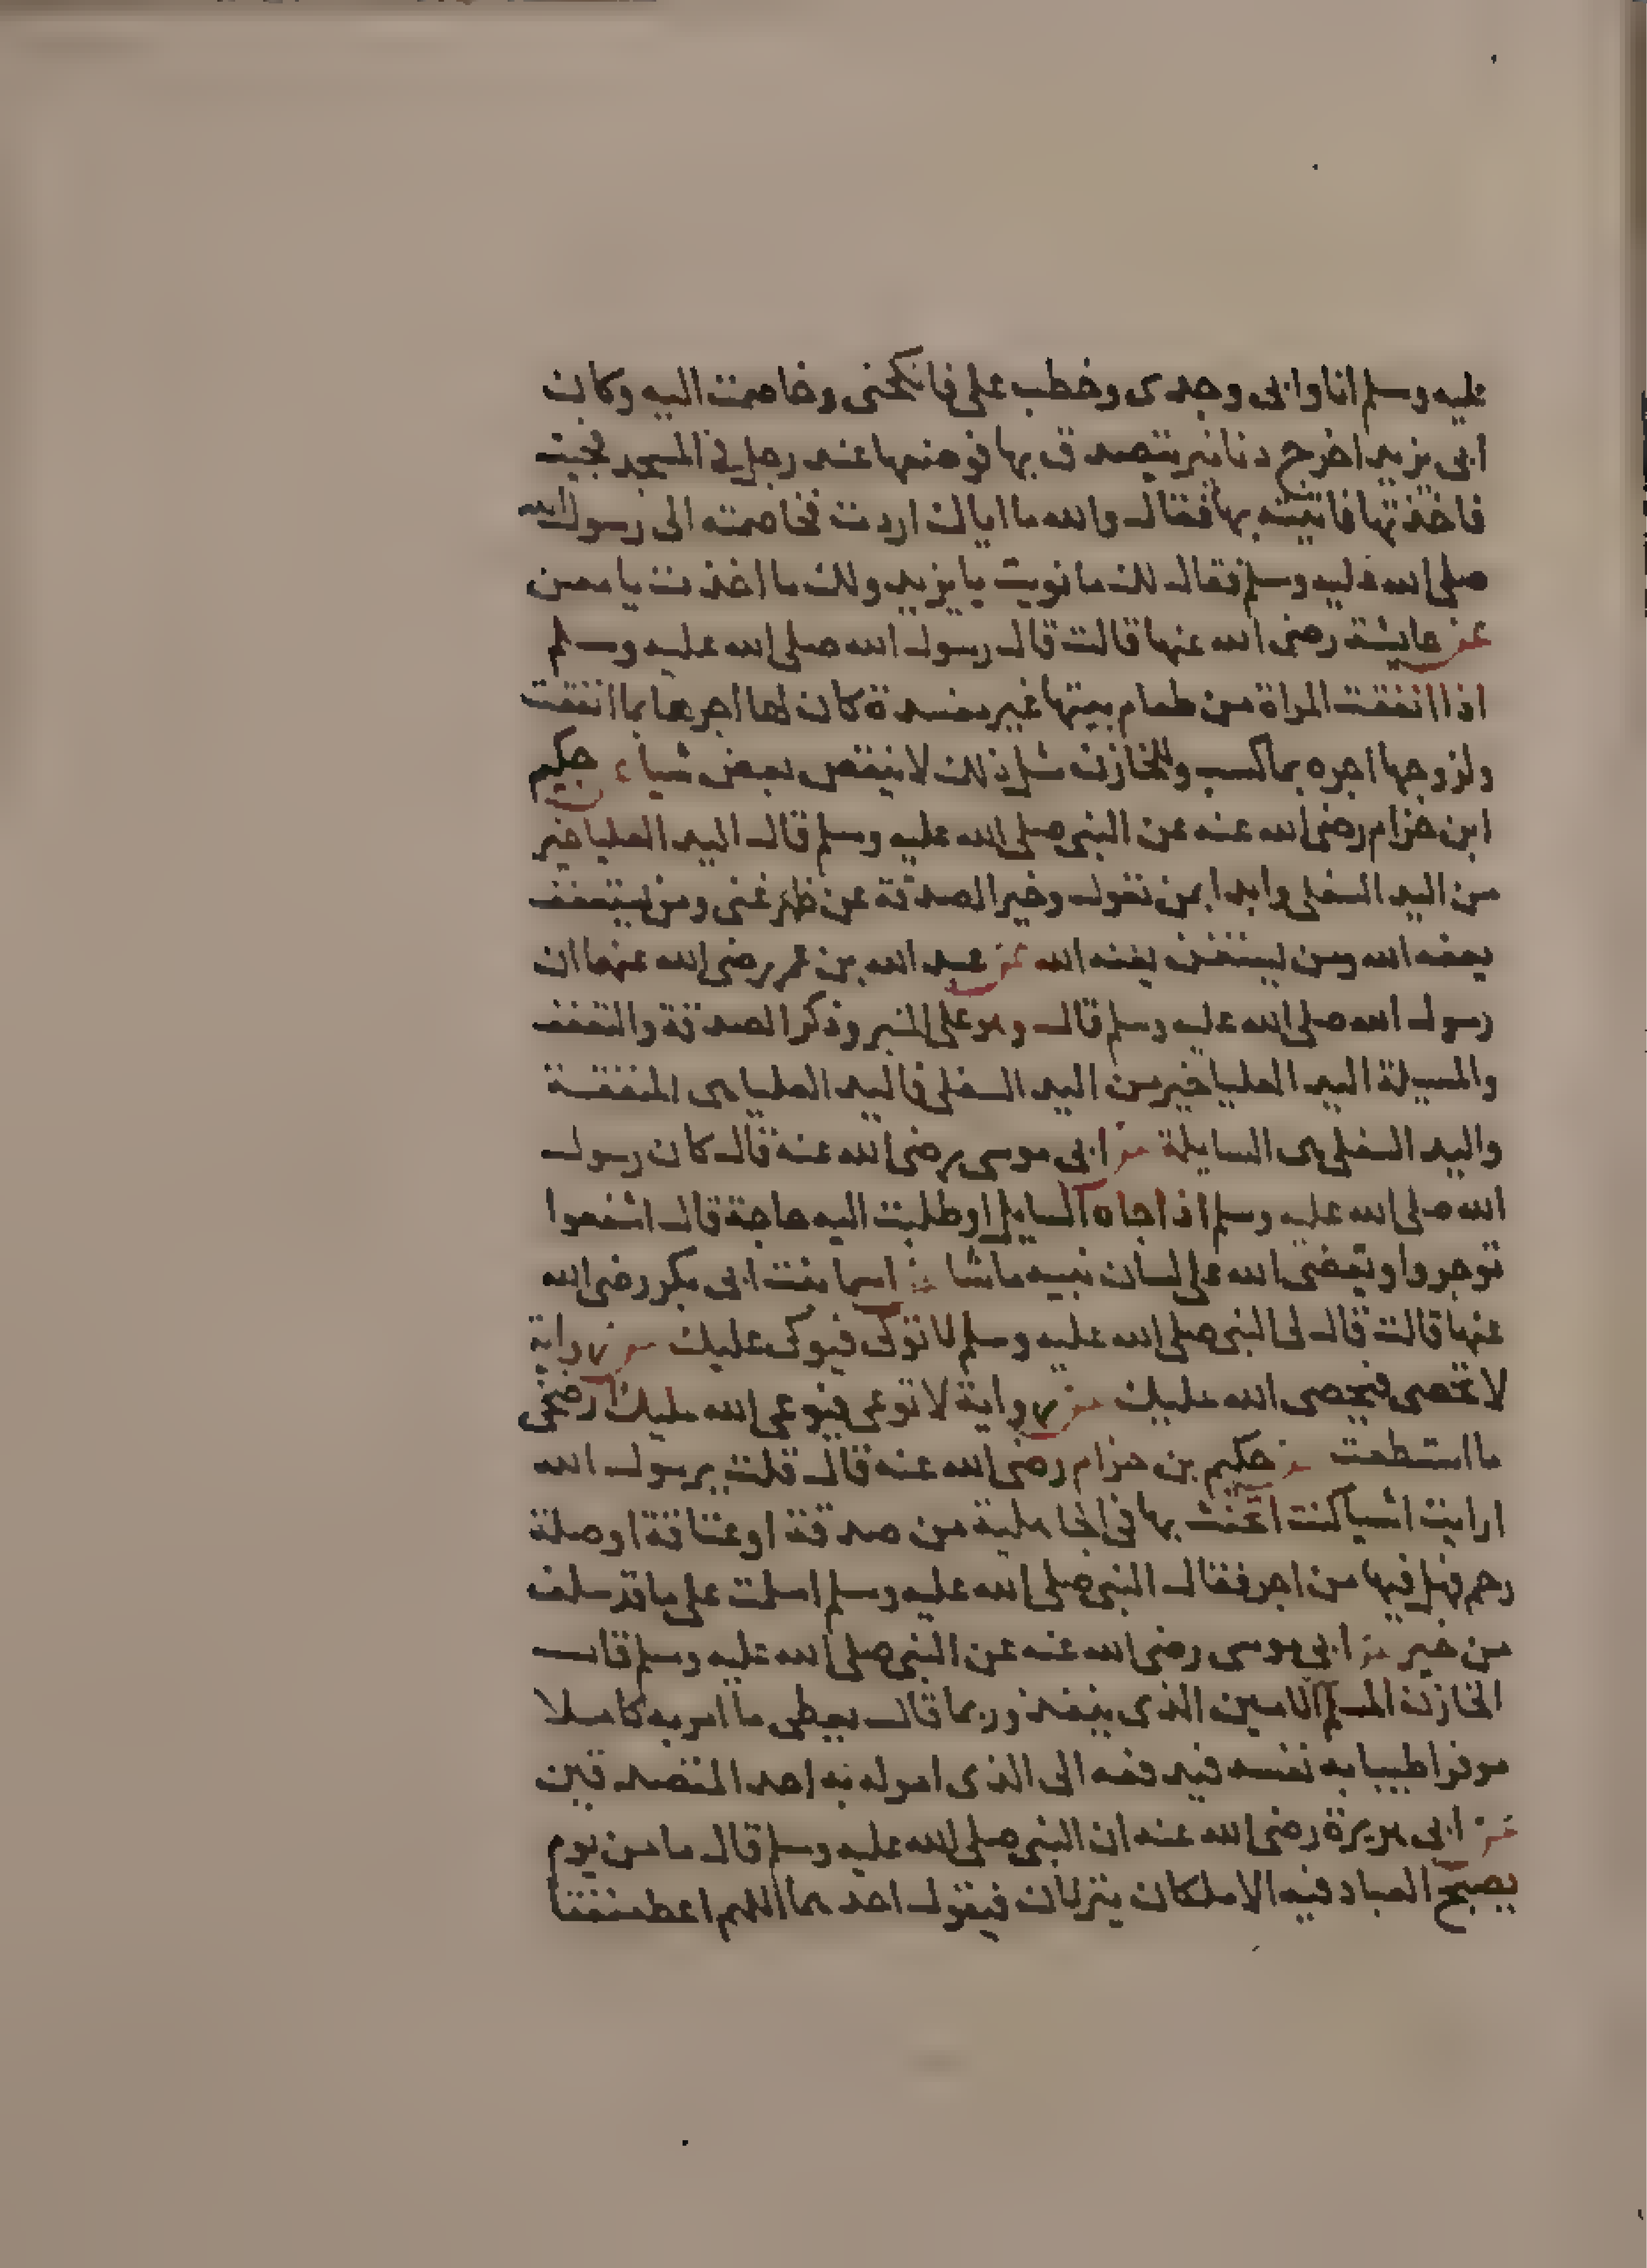 عليه وسلم انا وابى وجدى وخطب على فانكحنى وخاصمت اليه وكان
ابى يزيد اخرج دنانير يتصدق بها فوضعها عند رجل فى المسجد فجيت
فاخذتها فاتيته بها فقال والله ما اياك اردت فخاصمته الى رسول الله
صلى الله عليه وسلم فقال لك ما نويت يا يزيد ولك ما اخذت يا معن
عن عايشة رضى الله عنها قالت قال رسول الله صلى الله عليه وسلم
اذا انفقت المراة من طعام بيتها غير مفسدة كان لها اجرها بما انفقت
ولزوجها اجره بما كسب وللخازن مثل ذلك لا ينقص بعض شياء حكيم
ابن حزام رضى الله عنه عن النبى صلى الله عليه وسلم قال اليد العليا خير
من اليد السفلى وابدا بمن تعول وخير الصدقة عن ظهر غنى ومن يستعفف
يعفه الله ومن يستغن يغنه الله عن عبد الله بن عمر رضى الله عنهما ان
رسول الله صلى الله عليه وسلم قال وهو على المنبر وذكر الصدقة والتعفف
والمسيلة اليد العليا خير من اليد السفلى فاليد العليا هى المنفقة
واليد السفلى هى السايلة عن ابى موسى رضى الله عنه قال كان رسول
الله صلى الله عليه وسلم اذا جاه السايل او طلبت اليه حاجة قال اشفعوا
توجروا ويقضى الله على لسان نبيه ما شا عن اسما بنت ابى بكر رضى الله
عنها قالت قال لى النبى صلى الله عليه وسلم لا توكى فيوكى عليك رواية
لا تحصى فيحصى الله عليك رواية لا توعى فيوعى الله عليك ارضخى
ما استطعت عن حكيم بن حزام رضى الله عنه قال قلت يرسول الله
ارايت اشيا كنت اتحنث بها فى الجاهلية من صدقة او عتاقة او صلة
رحم فهل فيها من اجر فقال النبى صلى الله عليه وسلم اسلمت على ما قد سلف
من خير عن ابى موسى رضى الله عنه عن النبى صلى الله عليه وسلم قال
الخازن المسلم الامين الذى ينفذ وربما قال يعطى ما امر به كاملا
موفرا طيبا به نفسه فيدفعه الى الذى امر له به احد المتصدقين
عن ابى هريرة رضى الله عنه ان النبى صلى الله عليه وسلم قال ما من يوم
يصبح العباد فيه الا ملكان ينزلان فيقول احدهما اللهم اعط منفقا